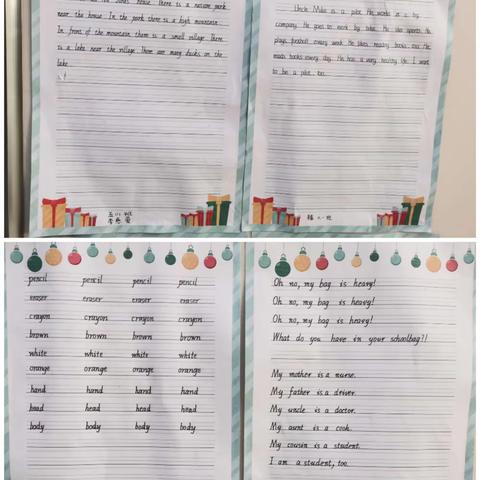 the Jones' house. There is a nature park
near the house. In the park there is a high mountain.
In front of the mountain there is a small village. There
is a lake near the village. There are many ducks on the
lake.
五(1)班
Uncle Mike is a pilot. He works in a big
company. He goes to work by bike. He like sports. He
plays football every week. He likes reading books, too. He
reads books every day. He has a very healthy life. I want
to be a pilot, too.
pencil pencil pencil pencil
eraser eraser eraser eraser
crayon crayon crayon crayon
brown brown brown brown
white white white white
orange orange orange orange
hand hand hand hand
head head head head
body body body body
Oh no, my bag is heavy!
Oh no, my bag is heavy!
Oh no, my bag is heavy!
What do you have in your schoolbag?!
My mother is a nurse.
My father is a driver.
My uncle is a doctor.
My aunt is a cook.
My cousin is a student.
I am a student, too.